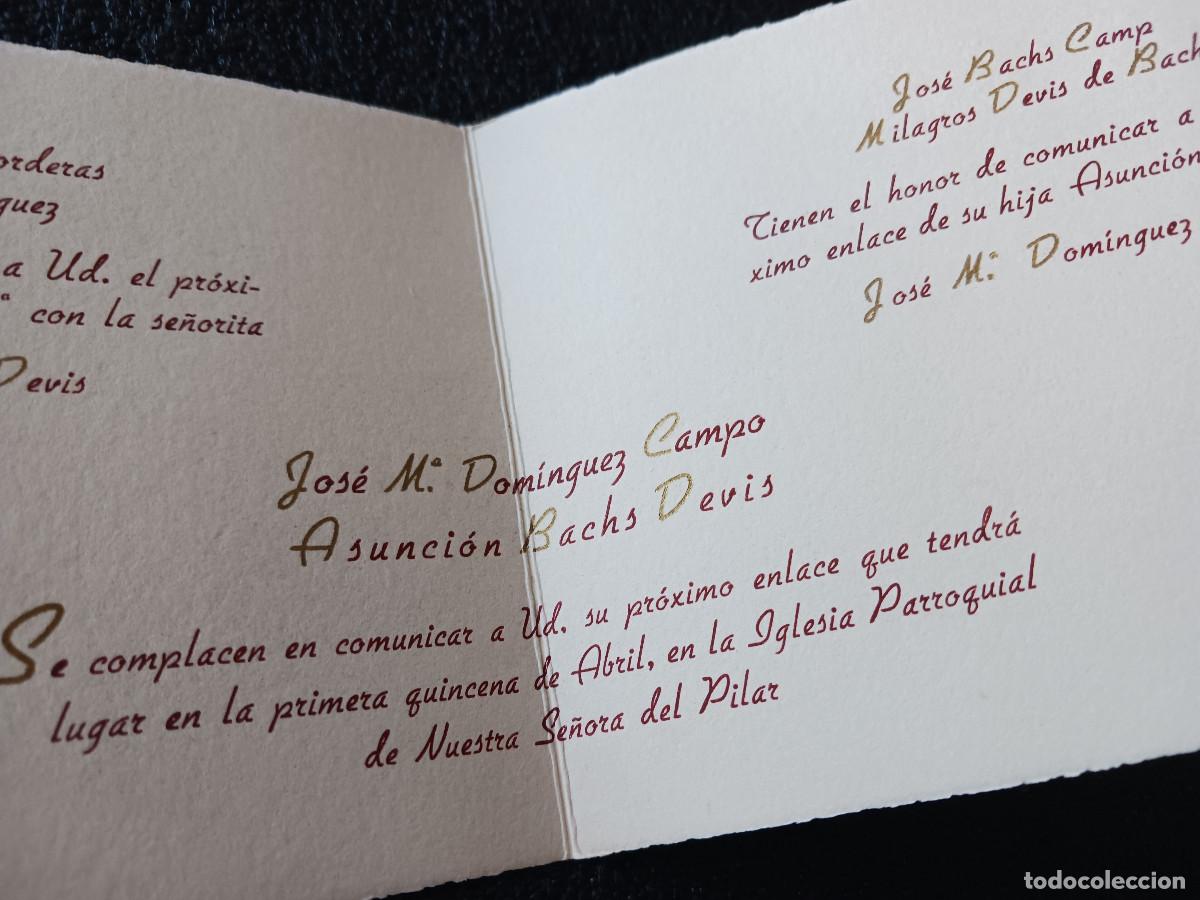 orderas
guez
a Ud. el próxi-
ª con la señorita
Devis
José Bachs Camp
Milagros Devis de Bach
Tienen el honor de comunicar a
ximo enlace de su hija Asunción
José M.ª Domínguez
José M.ª Domínguez Campo
Asunción Bachs Devis
Se complacen en comunicar a Ud. su próximo enlace que tendrá
lugar en la primera quincena de Abril, en la Iglesia Parroquial
de Nuestra Señora del Pilar
todocoleccion